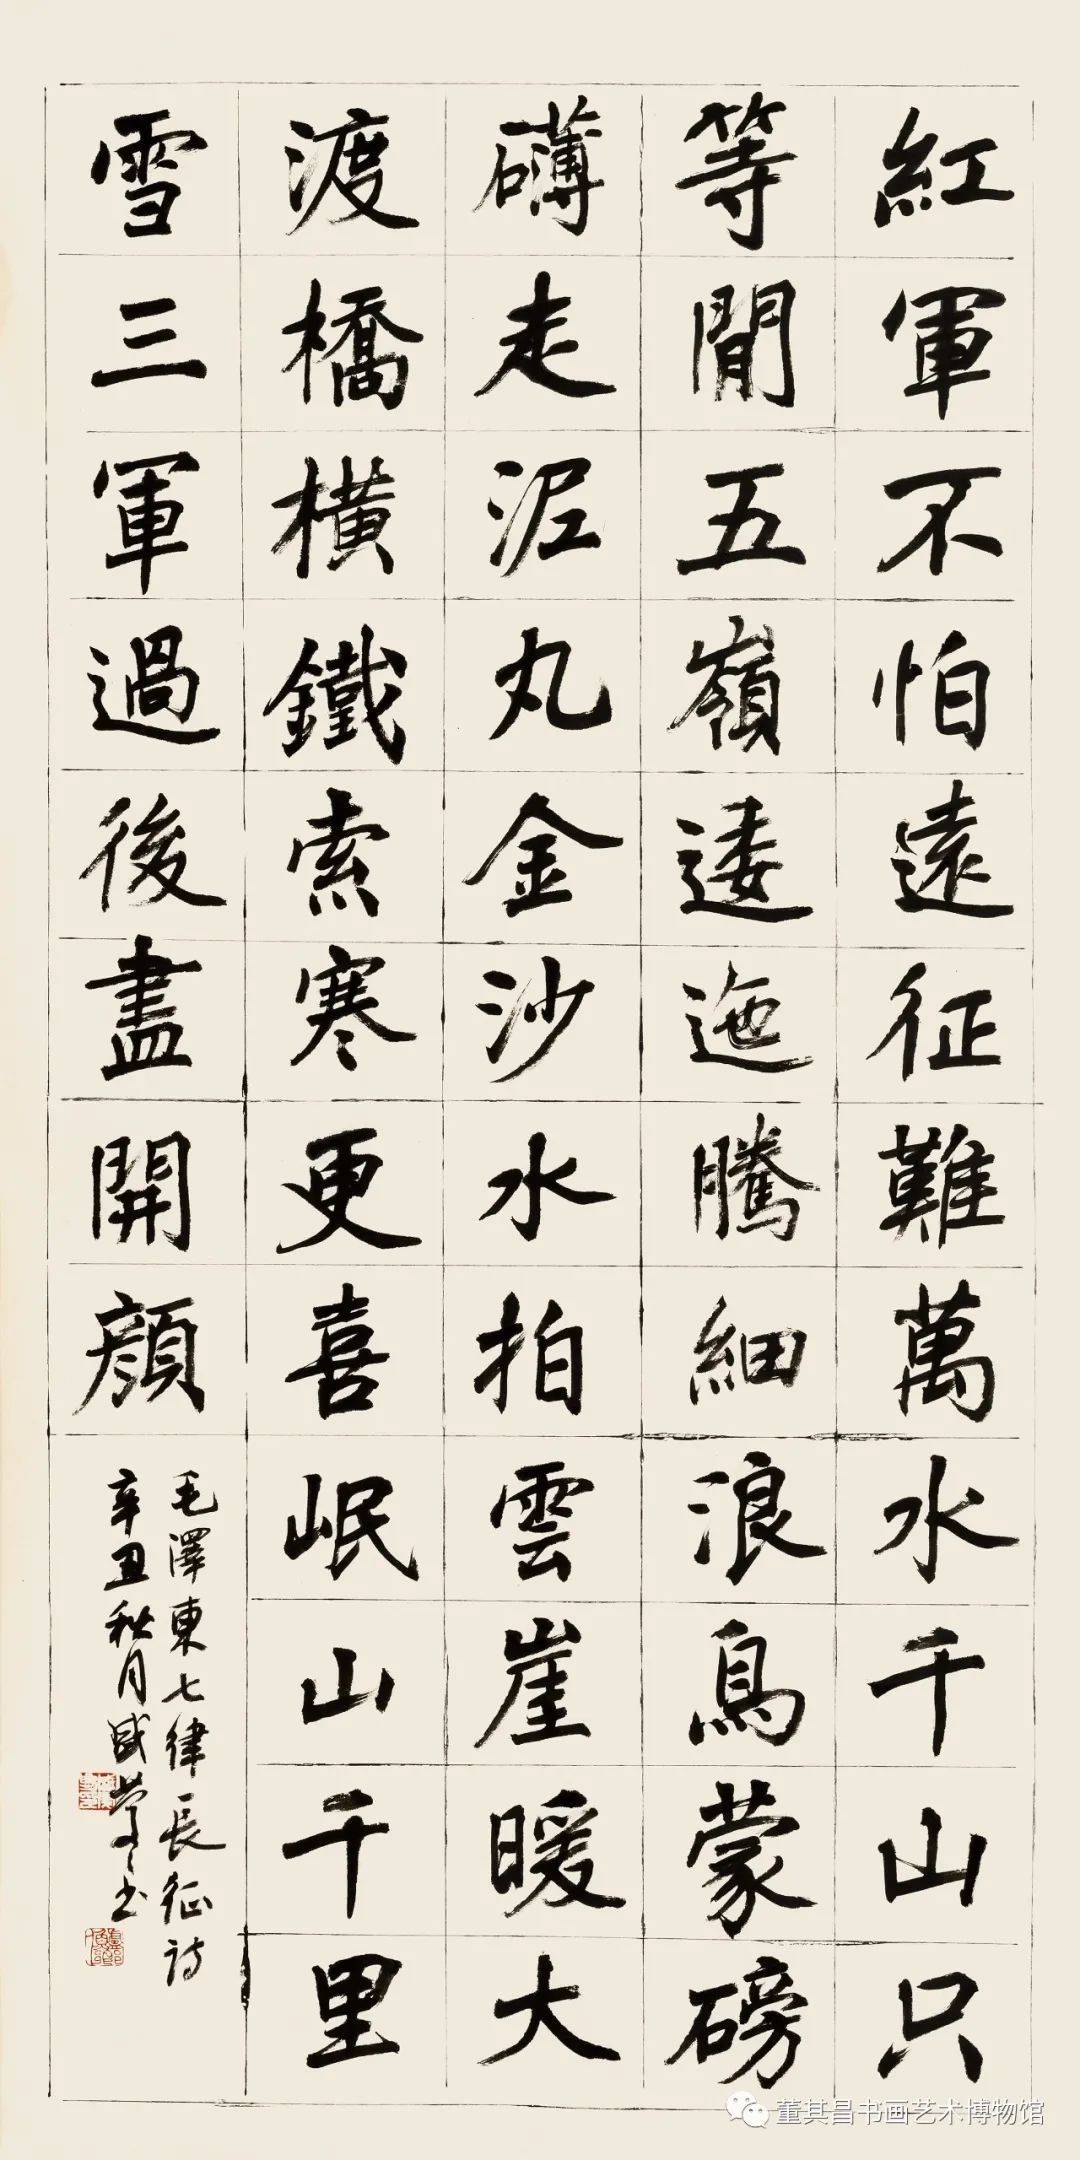 紅軍不怕遠征難萬水千山只
等閒五嶺逶迤騰細浪烏蒙磅
礴走泥丸金沙水拍雲崖暖大
渡橋橫鐵索寒更喜岷山千里
雪三軍過後盡開顏
毛澤東七律長征诗
辛丑秋月盛书
董其昌书画艺术博物馆